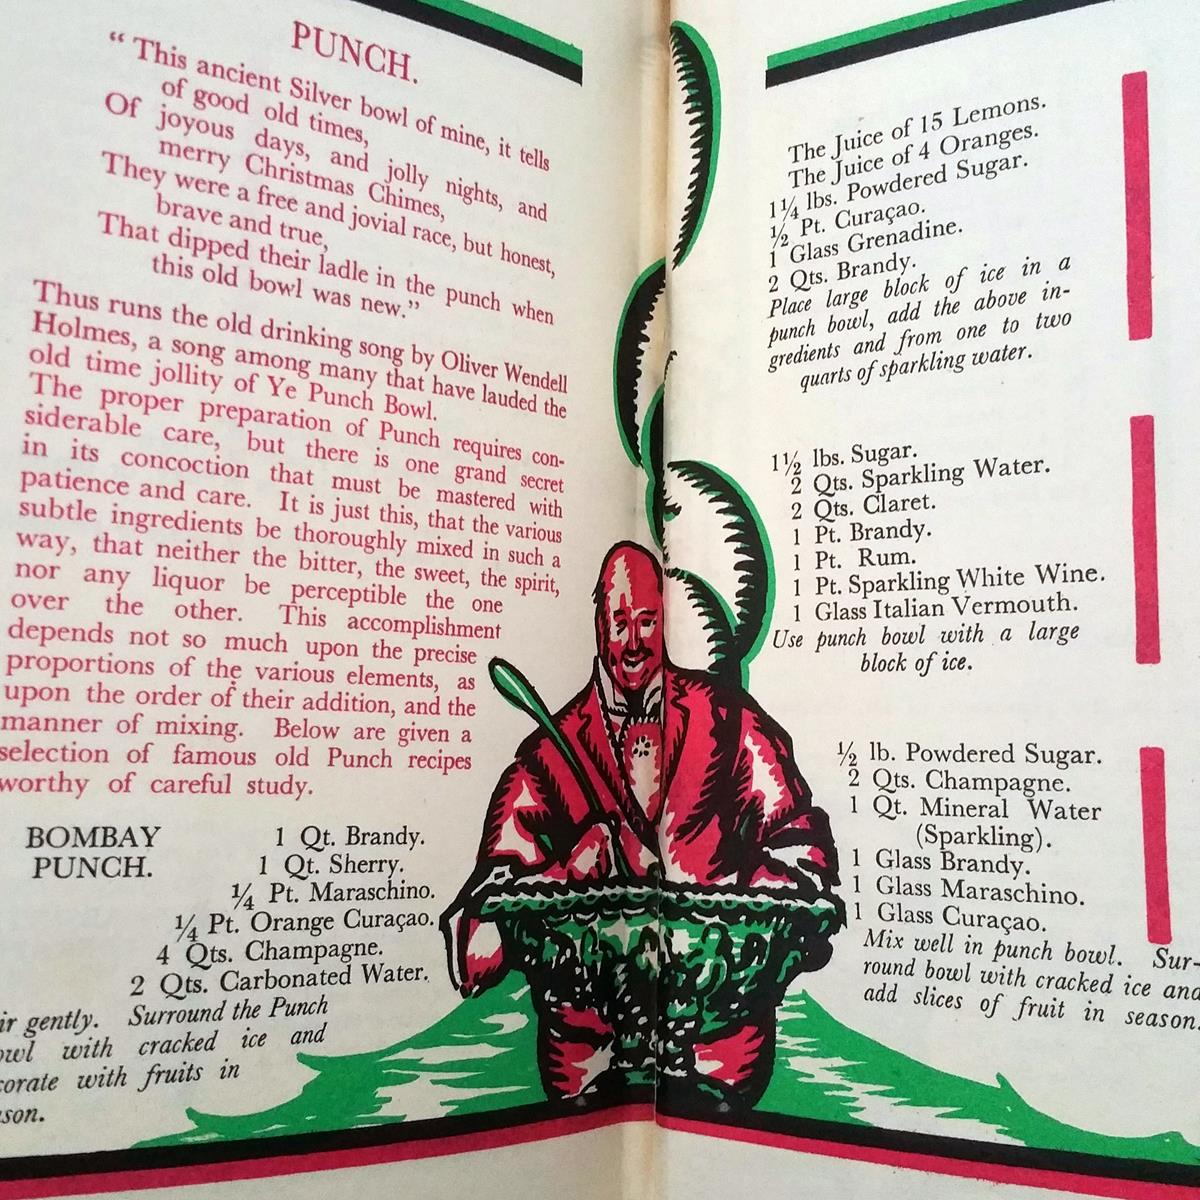 PUNCH.
“ This ancient Silver bowl of mine, it tells
of good old times,
Of joyous days, and jolly nights, and
merry Christmas Chimes,
They were a free and jovial race, but honest,
brave and true,
That dipped their ladle in the punch when
this old bowl was new.”
Thus runs the old drinking song by Oliver Wendell
Holmes, a song among many that have lauded the
old time jollity of Ye Punch Bowl.
The proper preparation of Punch requires con-
siderable care, but there is one grand secret
in its concoction that must be mastered with
patience and care. It is just this, that the various
subtle ingredients be thoroughly mixed in such a
way, that neither the bitter, the sweet, the spirit,
nor any liquor be perceptible the one
over the other. This accomplishment
depends not so much upon the precise
proportions of the various elements, as
upon the order of their addition, and the
manner of mixing. Below are given a
selection of famous old Punch recipes
worthy of careful study.
BOMBAY
PUNCH.
1 Qt. Brandy.
1 Qt. Sherry.
¼ Pt. Maraschino.
¼ Pt. Orange Curaçao.
4 Qts. Champagne.
2 Qts. Carbonated Water.
ir gently. Surround the Punch
owl with cracked ice and
corate with fruits in
ason.
The Juice of 15 Lemons.
The Juice of 4 Oranges.
1¼ lbs. Powdered Sugar.
½ Pt. Curaçao.
1 Glass Grenadine.
2 Qts. Brandy.
Place large block of ice in a
punch bowl, add the above in-
gredients and from one to two
quarts of sparkling water.
1½ lbs. Sugar.
2 Qts. Sparkling Water.
2 Qts. Claret.
1 Pt. Brandy.
1 Pt. Rum.
1 Pt. Sparkling White Wine.
1 Glass Italian Vermouth.
Use punch bowl with a large
block of ice.
½ lb. Powdered Sugar.
2 Qts. Champagne.
1 Qt. Mineral Water
(Sparkling).
1 Glass Brandy.
1 Glass Maraschino.
1 Glass Curaçao.
Mix well in punch bowl. Sur-
round bowl with cracked ice and
add slices of fruit in season.